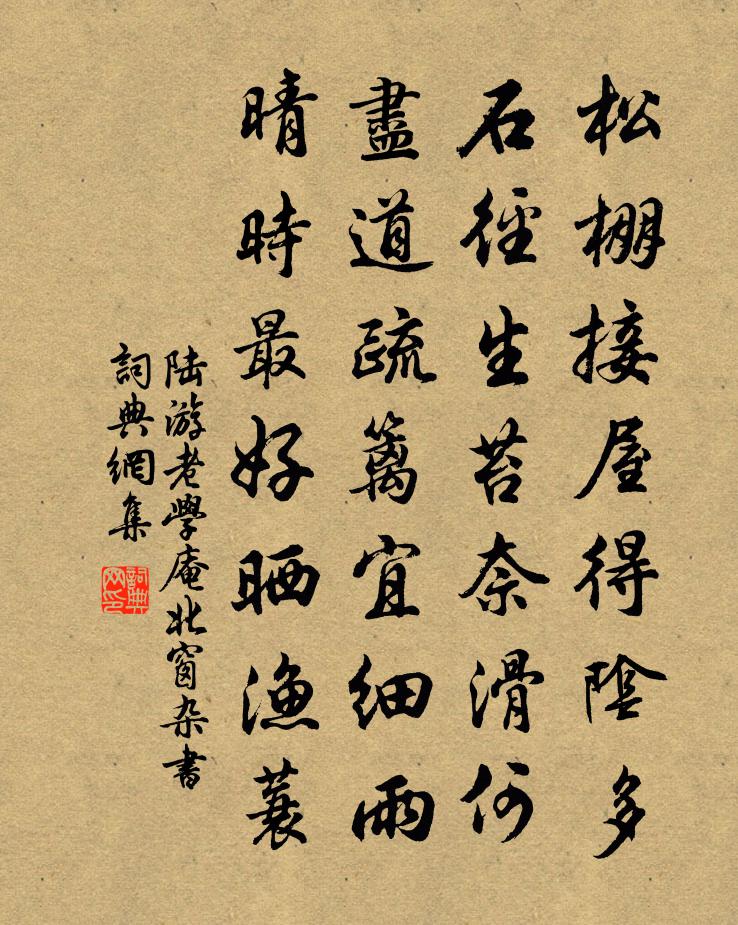 松棚接屋得陰多
石徑生苔奈滑何
盡道疏篱宜細雨
晴時最好晒漁蓑
陆游老學庵北窗杂書
詞典網集
詞典
网印